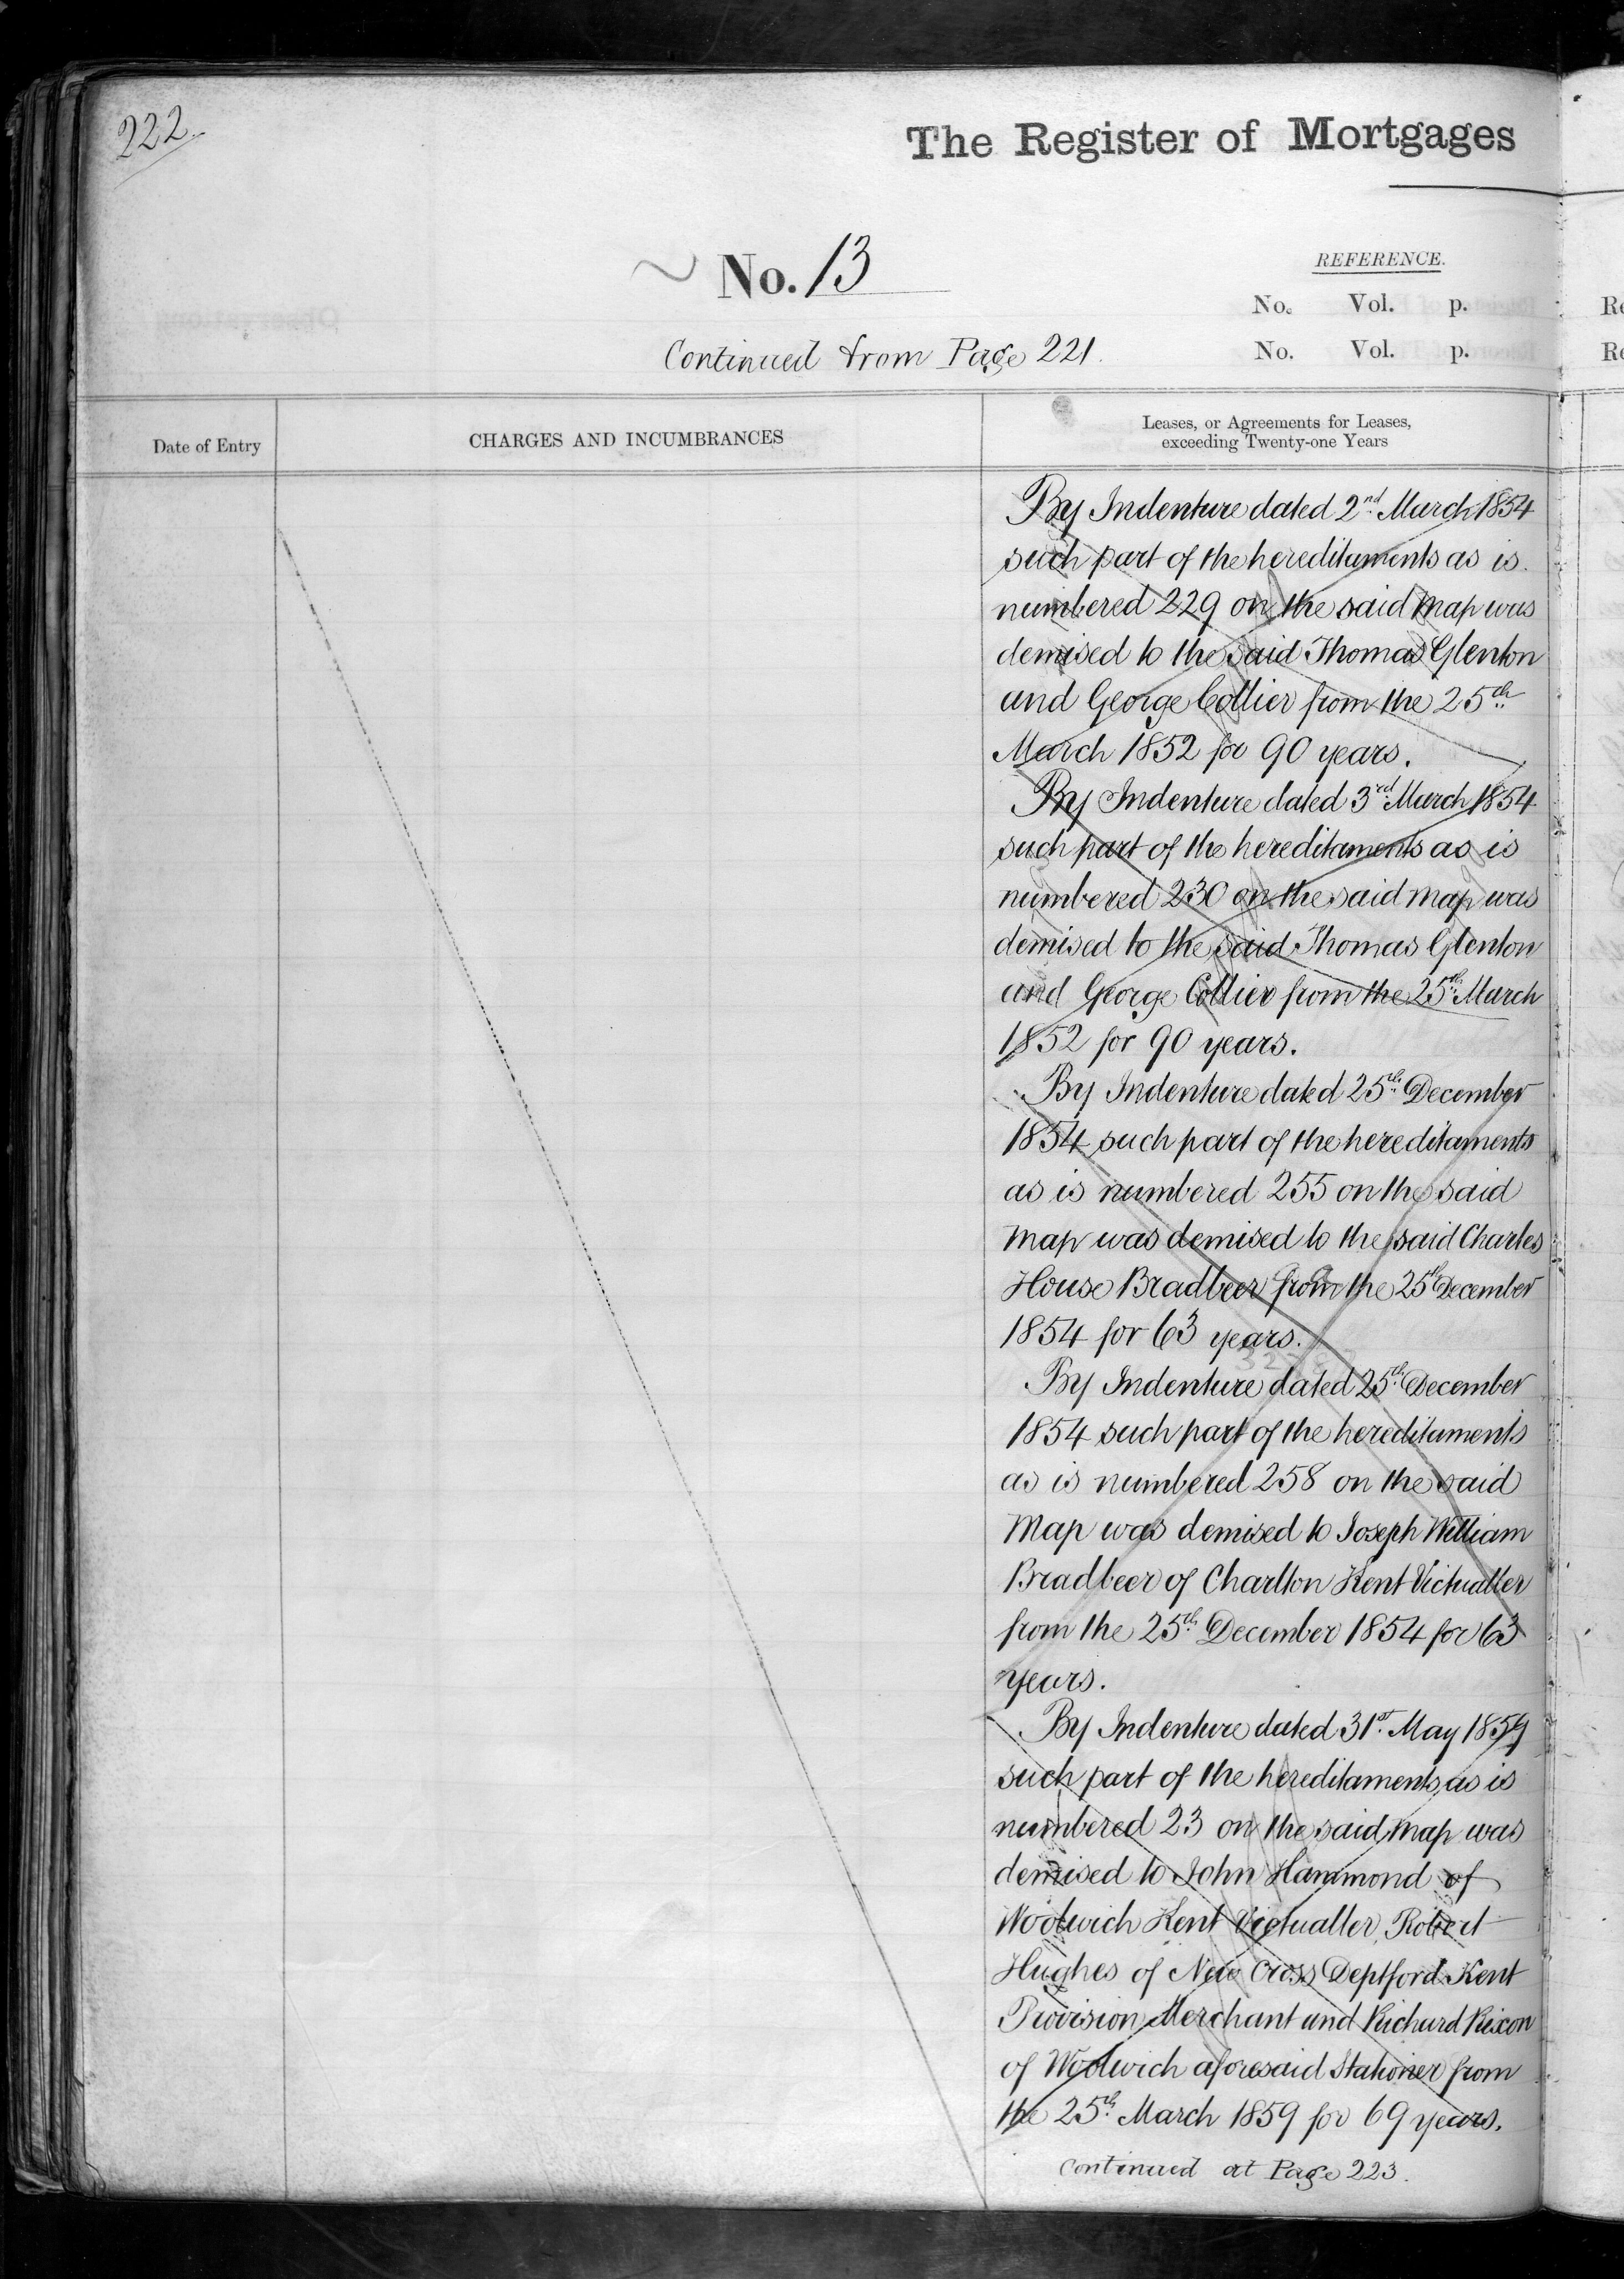 222.
The Register of Mortgages
No. 13
REFERENCE.
No. Vol. p.
Continued from Page 221.
No. Vol. p.
Date of Entry
CHARGES AND INCUMBRANCES
Leases, or Agreements for Leases,
exceeding Twenty-one Years
By Indenture dated 2nd March 1854
such part of the hereditaments as is
numbered 229 on the said map was
demised to the said Thomas Glenton
and George Collier from the 25th
March 1852 for 90 years.
By Indenture dated 3rd March 1854
such part of the hereditaments as is
numbered 230 on the said map was
demised to the said Thomas Glenton
and George Collier from the 25th March
1852 for 90 years.
By Indenture dated 25th December
1854 such part of the hereditaments
as is numbered 255 on the said
map was demised to the said Charles
House Bradbeer from the 25th December
1854 for 63 years.
By Indenture dated 25th December
1854 such part of the hereditaments
as is numbered 258 on the said
Map was demised to Joseph William
Bradbeer of Charlton Kent Victualler
from the 25th December 1854 for 63
years.
By Indenture dated 31st May 1859
such part of the hereditaments as is
numbered 23 on the said map was
demised to John Hammond of
Woolwich Kent Victualler, Robert
Hughes of New Cross Deptford Kent
Provision Merchant and Richard Rixon
of Woolwich aforesaid Stationer from
the 25th March 1859 for 69 years.
Continued at Page 223.